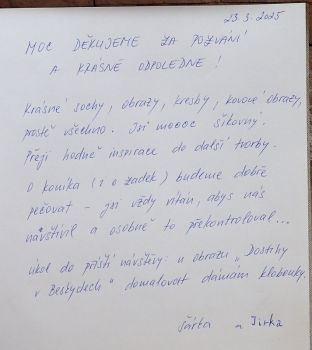 23.3.2025
MOC DĚKUJEME ZA POZVÁNÍ
A KRÁSNÉ ODPOLEDNE!
Krásné sochy, obrazy, kresby, kovové obrazy,
prostě všechno. Jsi moooc šikovný.
Přeji hodně inspirace do další tvorby.
O koníka (i o zadek) budeme dobře
pečovat – jsi vždy vítán, abys nás
navštívil a osobně to překontroloval...
Úkol do příští návštěvy: u obrazu „Dostihy
v Beskydech" domalovat dámám klobouky.
Šárka a Jirka